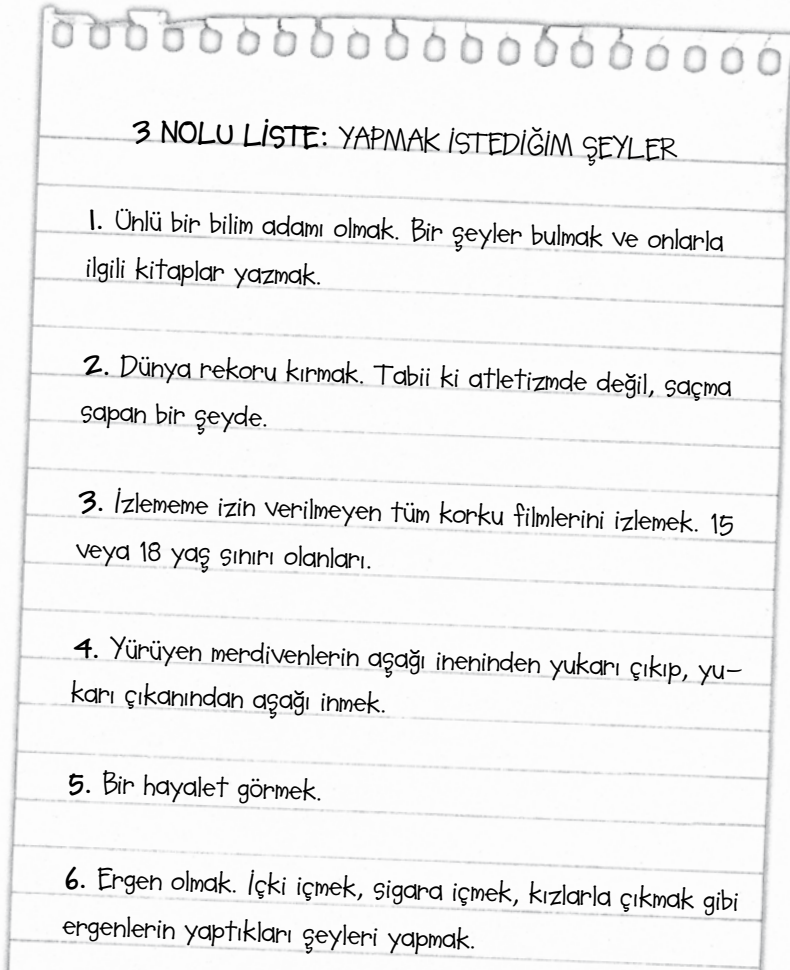 3 NOLU LİSTE: YAPMAK İSTEDİĞİM ŞEYLER
1. Ünlü bir bilim adamı olmak. Bir şeyler bulmak ve onlarla
ilgili kitaplar yazmak.
2. Dünya rekoru kırmak. Tabii ki atletizmde değil, saçma
sapan bir şeyde.
3. İzlememe izin verilmeyen tüm korku filmlerini izlemek. 15
veya 18 yaş sınırı olanları.
4. Yürüyen merdivenlerin aşağı ineninden yukarı çıkıp, yu-
karı çıkanından aşağı inmek.
5. Bir hayalet görmek.
6. Ergen olmak. İçki içmek, sigara içmek, kızlarla çıkmak gibi
ergenlerin yaptıkları şeyleri yapmak.